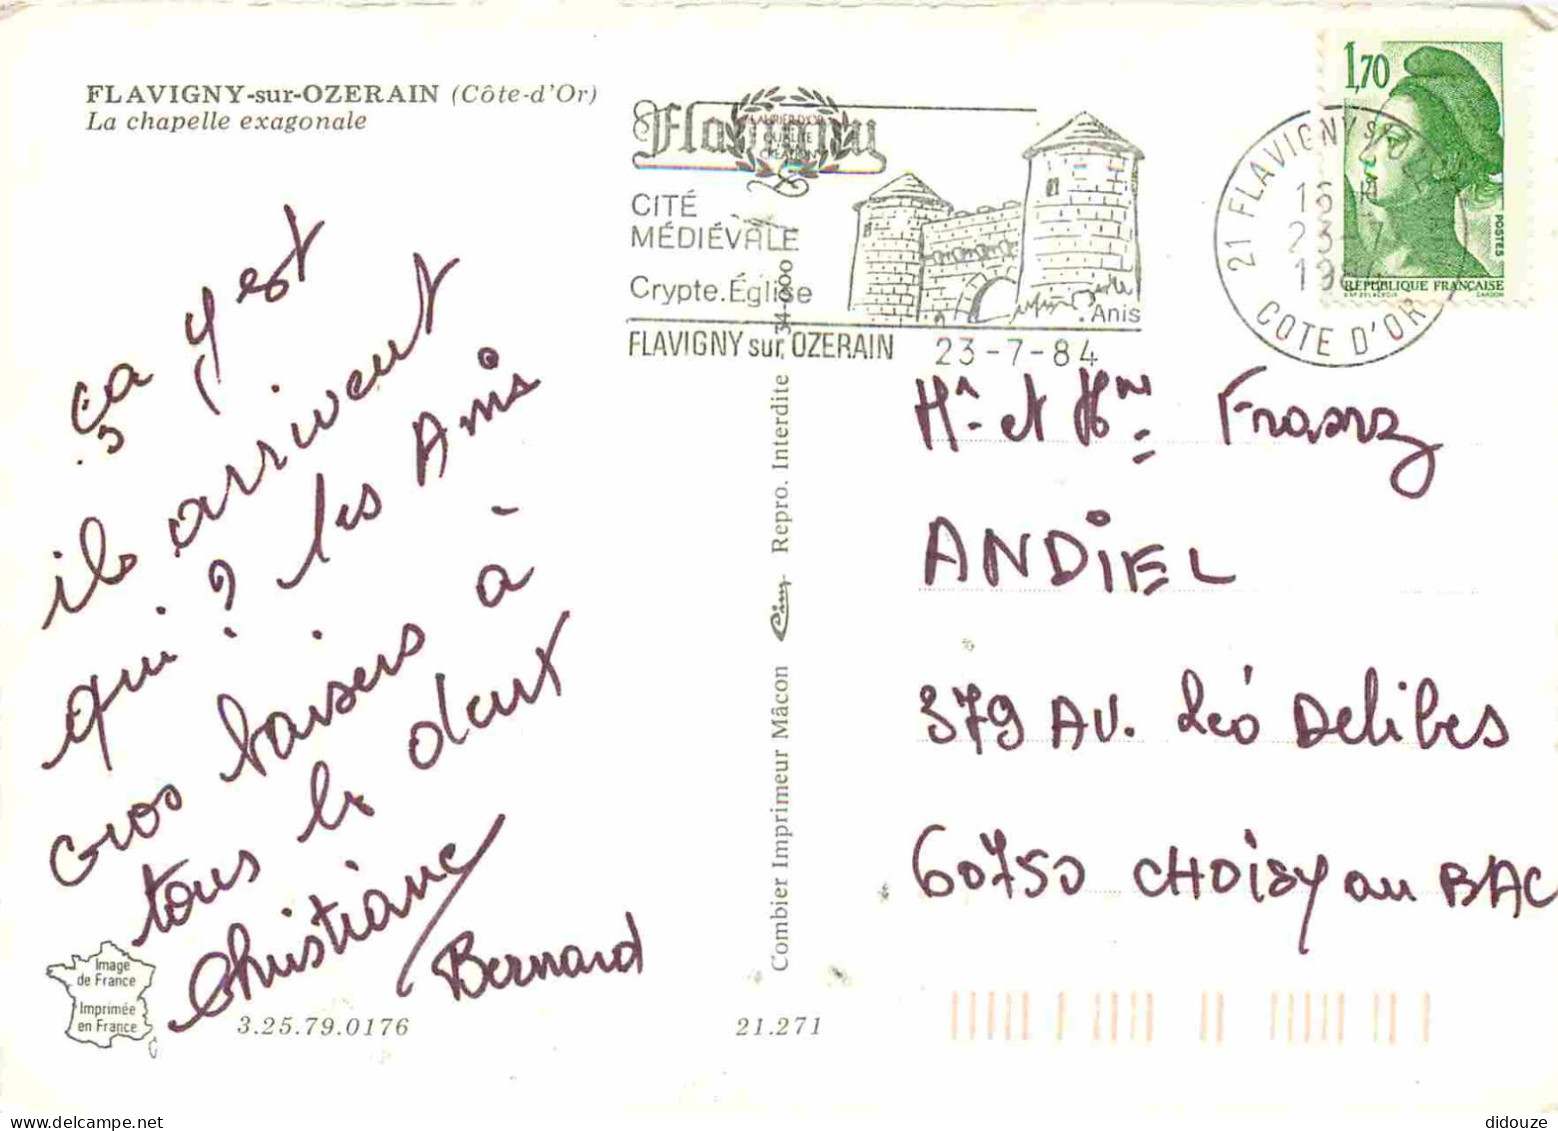 FLAVIGNY-sur-OZERAIN (Côte-d'Or)
La chapelle exagonale
ça y est
ils arrivent
qui ? les Amis
Gros baisers à
tous les deux
Christiane / Bernard
Image
de France
Imprimée
en France
3.25.79.0176
21.271
Combier Imprimeur Mâcon Cim Repro. Interdite 34-000
Flavigny
LAURIER D'OR
QUALITÉ
CRÉATION
CITÉ
MÉDIÉVALE
Crypte.Église
.Anis
FLAVIGNY sur OZERAIN 23-7-84
21 FLAVIGNY S/
23-7
COTE D'OR
1,70
POSTES
RÉPUBLIQUE FRANÇAISE
Mr et Mme Franz
ANDIEL
379 AV. Léo Delibes
60750 CHOISY au BAC
didouze